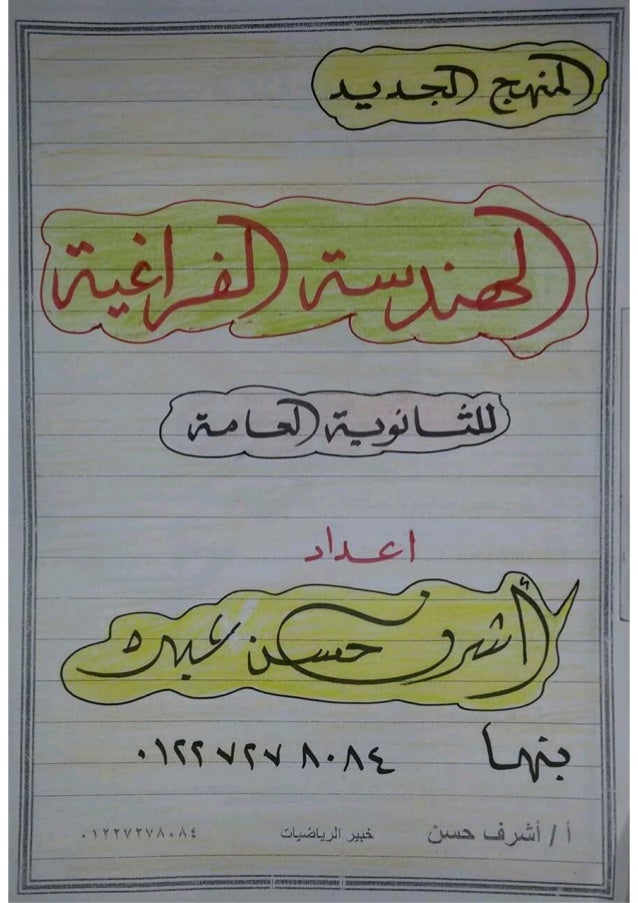 المنهج الجديد
الهندسة الفراغية
للثانوية العامة
اعداد
أشرف حسن
بنها ٠١٢٢٧٢٧٨٠٨٤
أ / أشرف حسن خبير الرياضيات ٠١٢٢٧٢٧٨٠٨٤